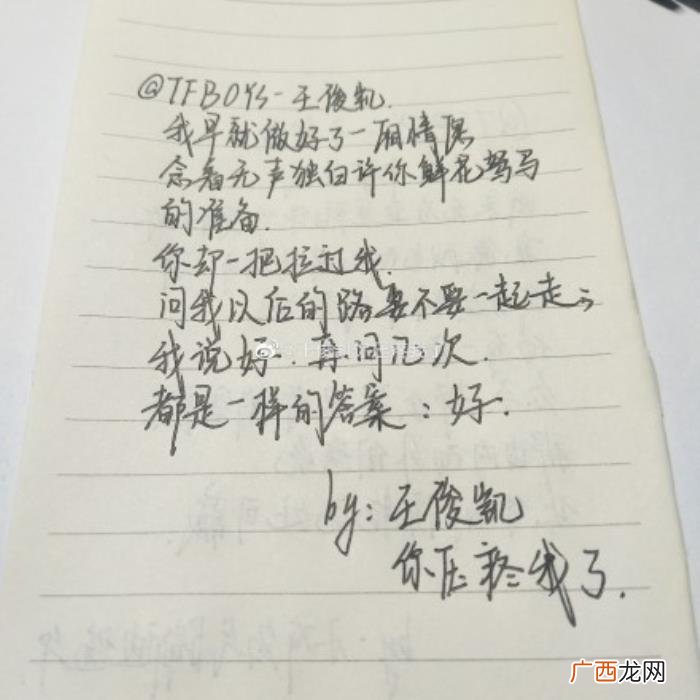 @TFBOYS-王俊凯.
我早就做好了一厢情愿
念着无声独白许你鲜花驽马
的准备.
你却一把拉过我.
问我以后的路要不要一起走
我说好.再问几次.
都是一样的答案:好.
by:王俊凯
你压疼我了.
广西龙网